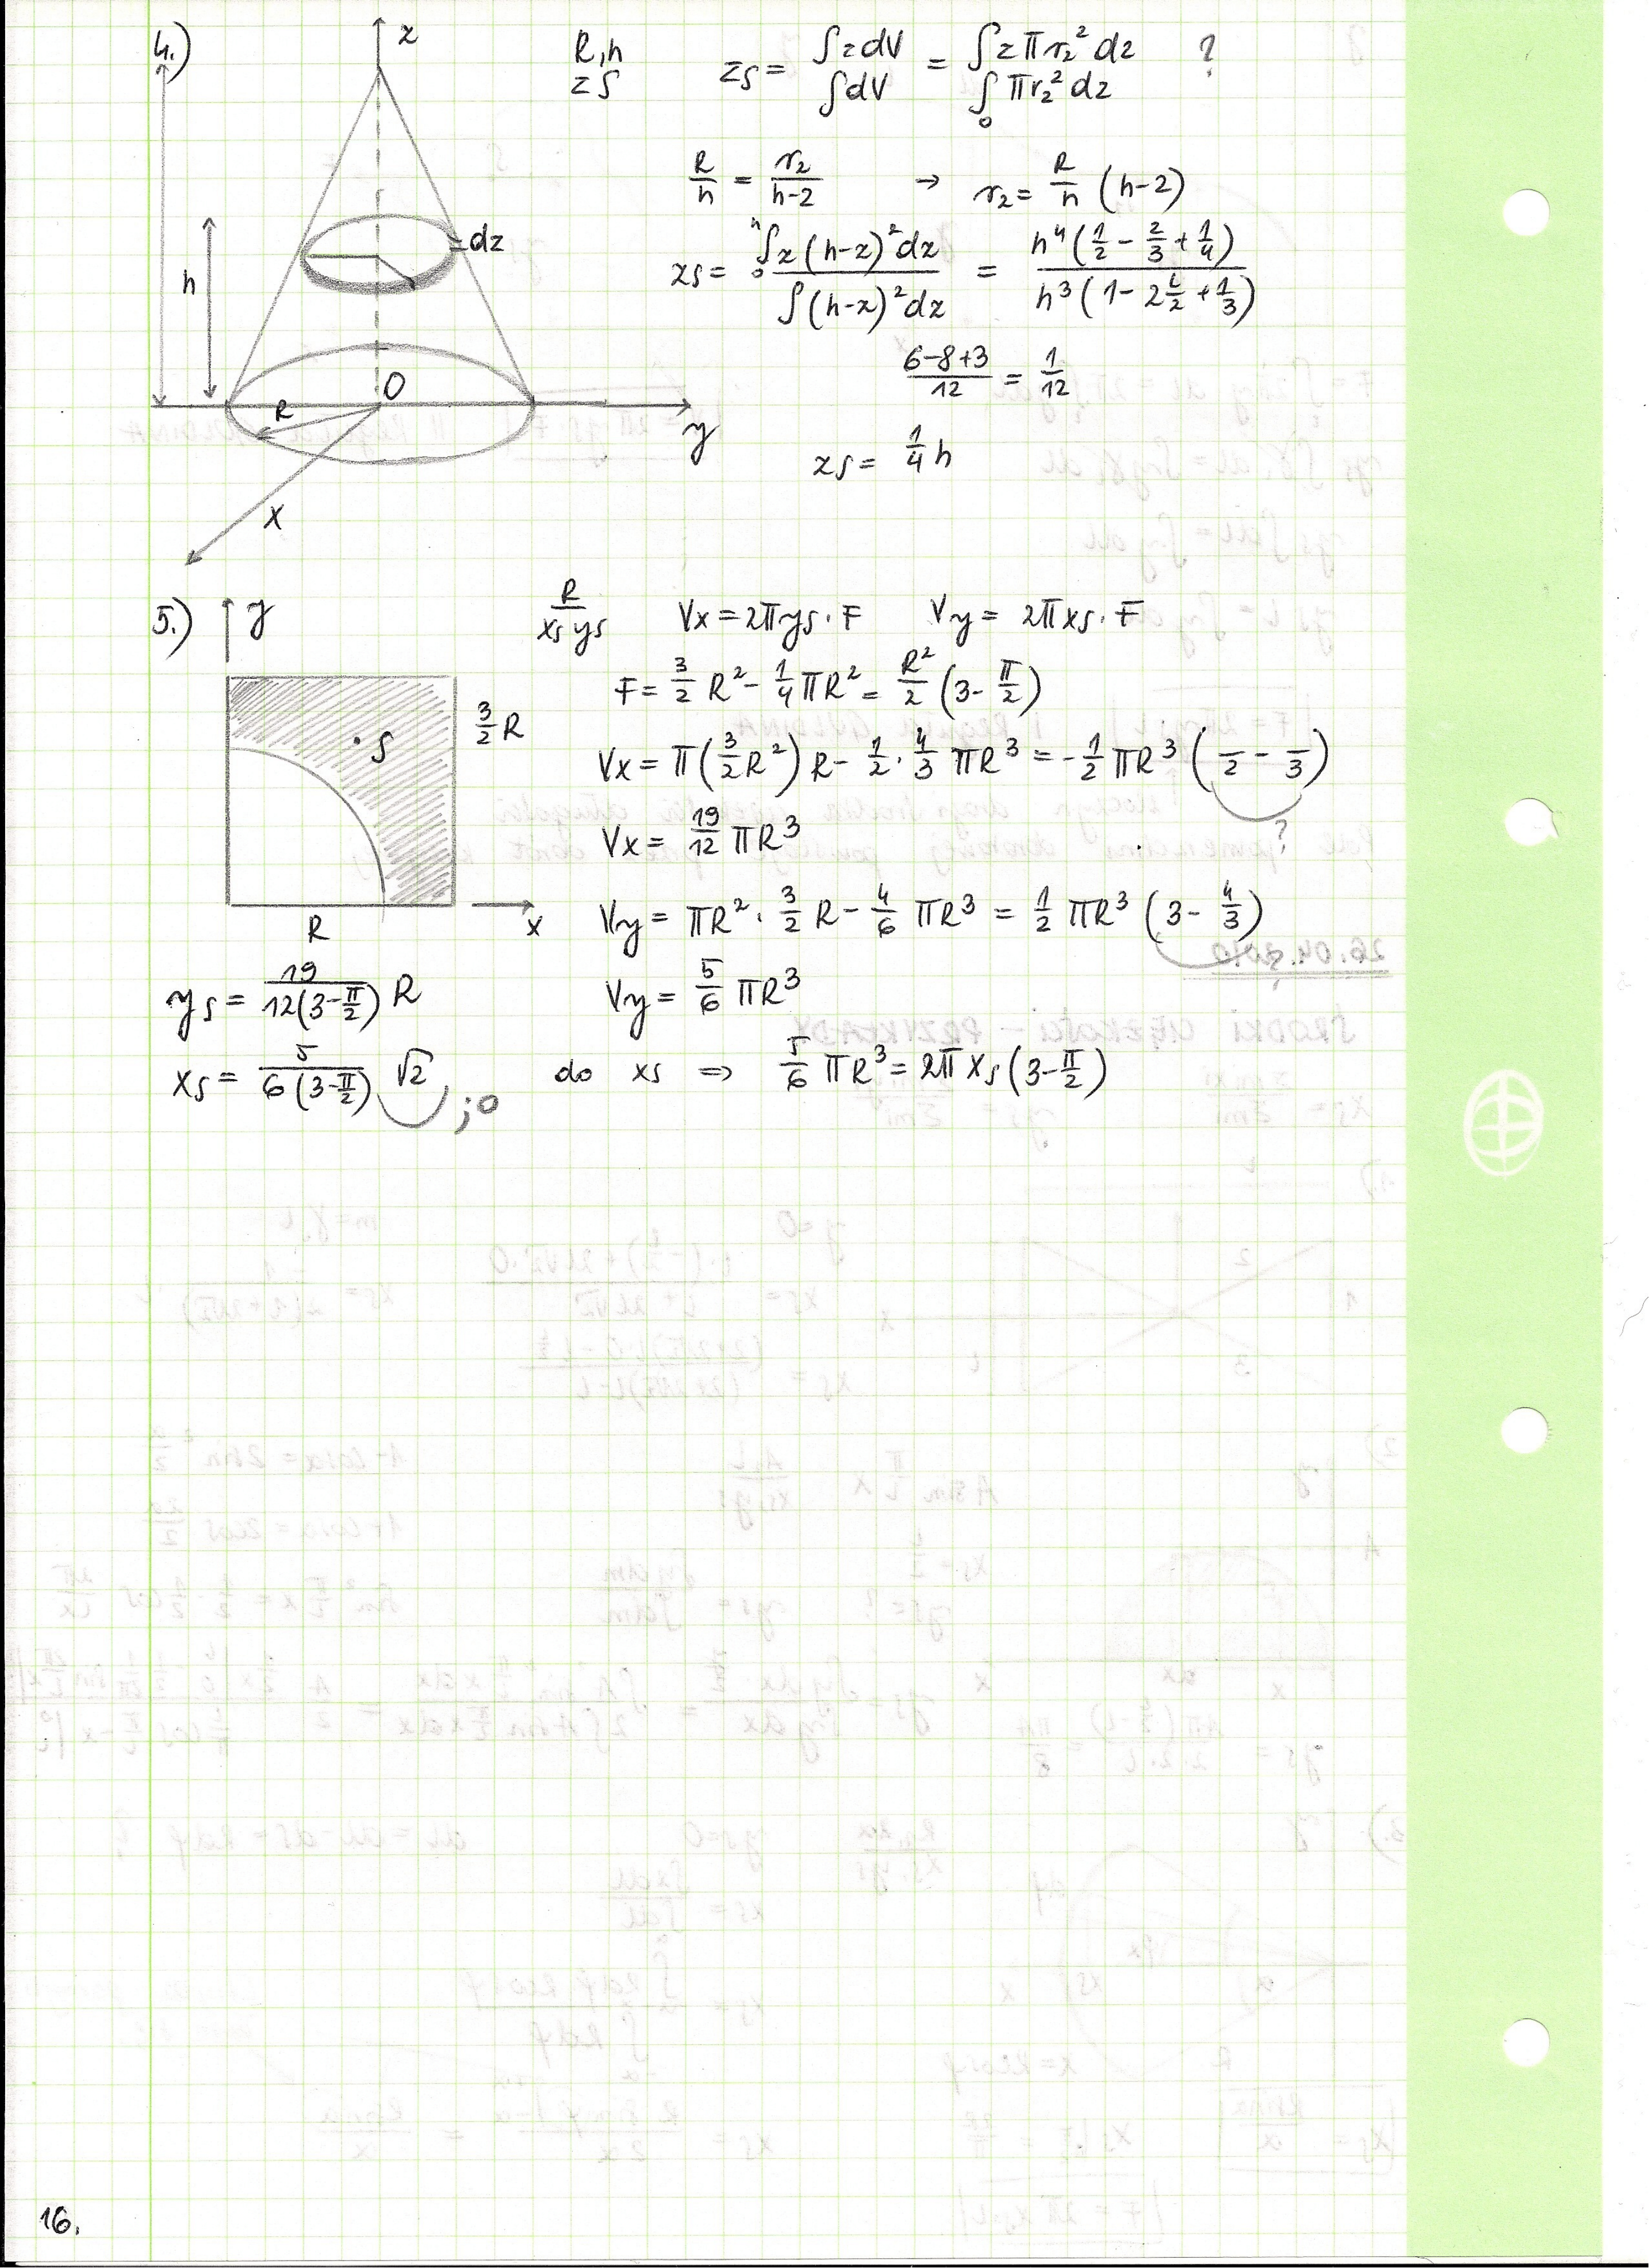 4.)
z
R, h
zs
zs = ∫zdV / ∫dV = ∫z π r2² dz / ∫0 π r2² dz ?
R/h = r2/(h-2) → r2 = R/h (h-2)
dz
h
zs = 0∫h z(h-z)² dz / ∫(h-z)² dz = h⁴(1/2 - 2/3 + 1/4) / h³(1 - 2 1/2 + 1/3)
(6-8+3)/12 = 1/12
O
R
y
zs = 1/4 h
x
5.)
y
R / xs ys
Vx = 2π ys · F Vy = 2π xs · F
F = 3/2 R² - 1/4 πR² = R²/2 (3 - π/2)
3/2 R
S
Vx = π(3/2 R²) R - 1/2 · 4/3 πR³ = -1/2 πR³ (-/2 - -/3)
?
Vx = 19/12 πR³
R
x
Vy = πR² · 3/2 R - 4/6 πR³ = 1/2 πR³ (3 - 4/3)
ys = 19 / 12(3 - π/2) R
Vy = 5/6 πR³
xs = 5 / 6(3 - π/2) √2 ;0
do xs ⇒ 5/6 πR³ = 2π xs (3 - π/2)
16.